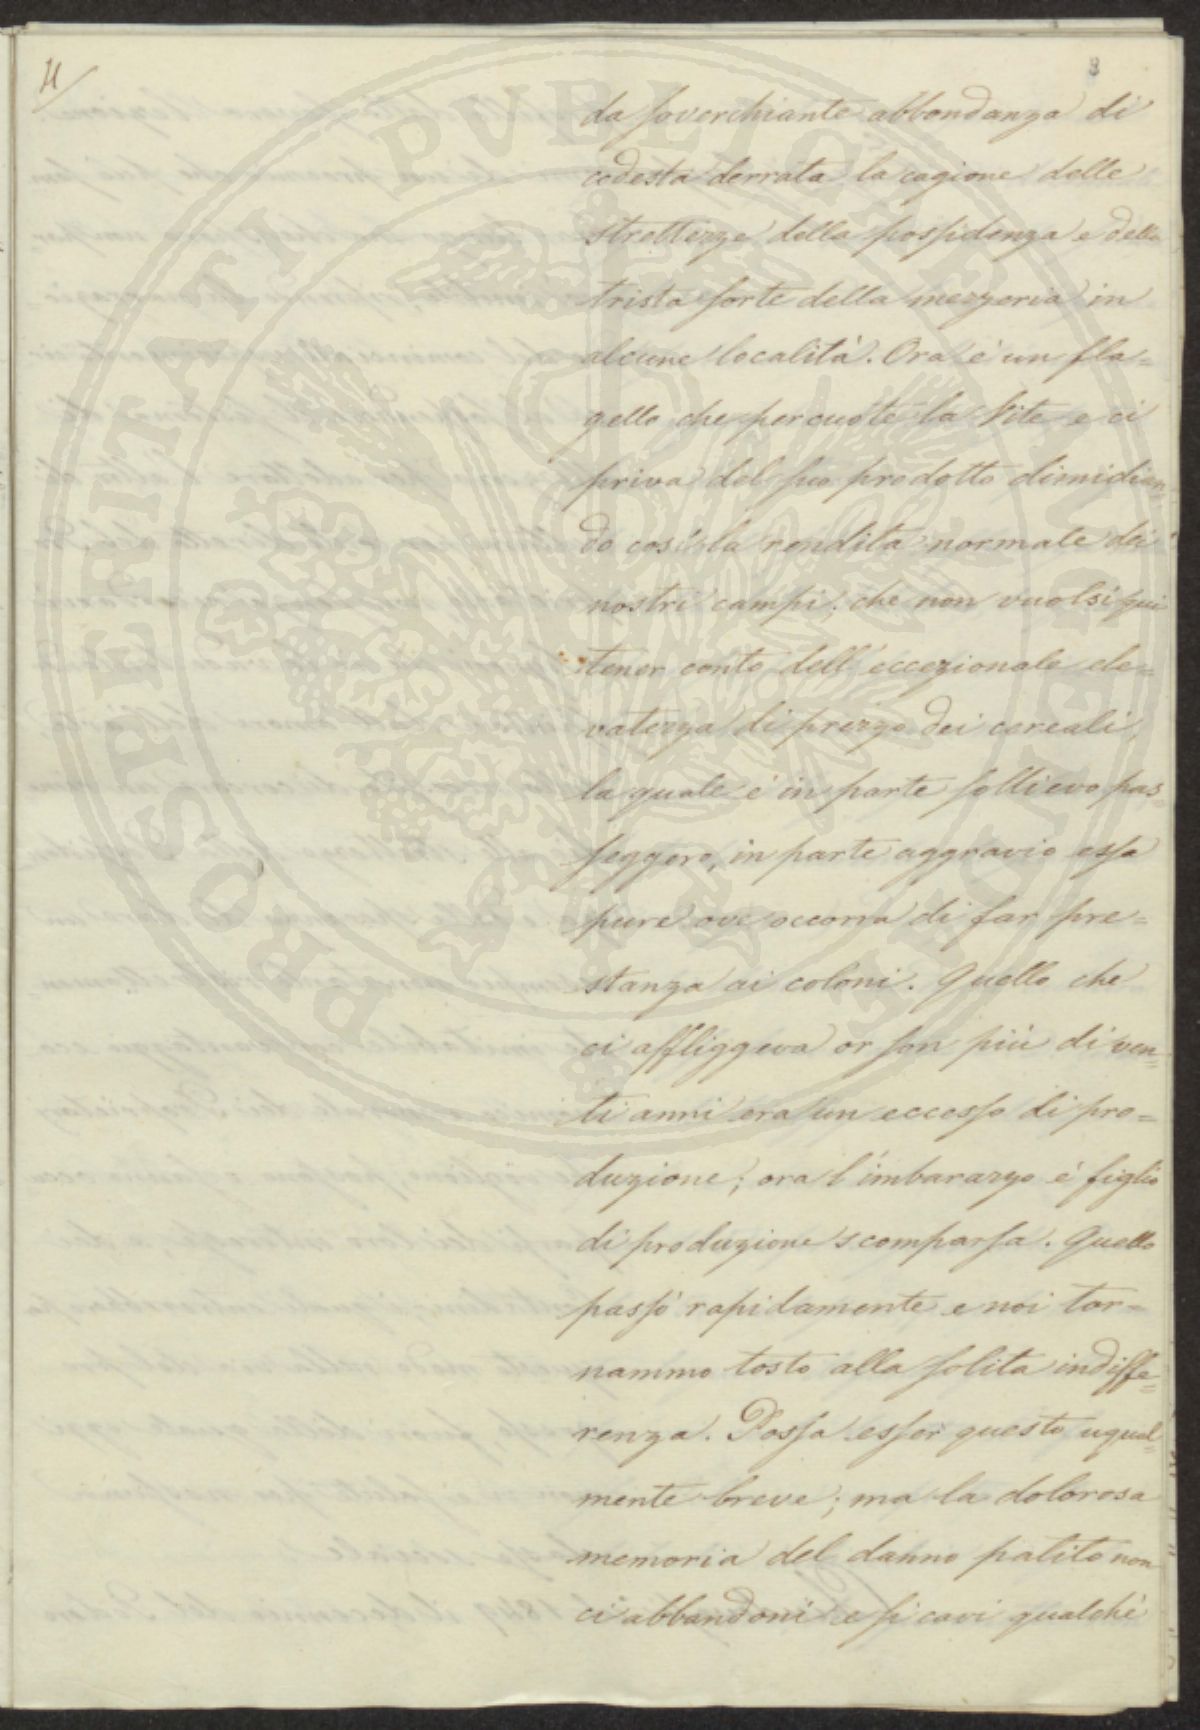 11/
8
da soverchiante abbondanza di
codesta derrata la cagione delle
strettezze della possidenza e della
trista sorte della mezzeria in
alcune località. Ora è un fla=
gello che percuote la Vite e ci
priva del suo prodotto dimidian
do così la rendita normale dei
nostri campi; che non vuolsi qui
tener conto dell'eccezionale ele=
vatezza di prezzo dei cereali,
la quale è in parte sollievo pas=
seggero, in parte aggravio essa
pure ove occorra di far pre=
stanza ai coloni. Quello che
ci affliggeva or son più di ven=
ti anni era un eccesso di pro=
duzione; ora l'imbarazzo è figlio
di produzione scomparsa. Quello
passò rapidamente e noi tor=
nammo tosto alla solita indiffe=
renza. Possa esser questo ugual=
mente breve; ma la dolorosa
memoria del danno patito non
ci abbandoni e si cavi qualche
PROSPERITATI PVBLICAE AVGENDAE